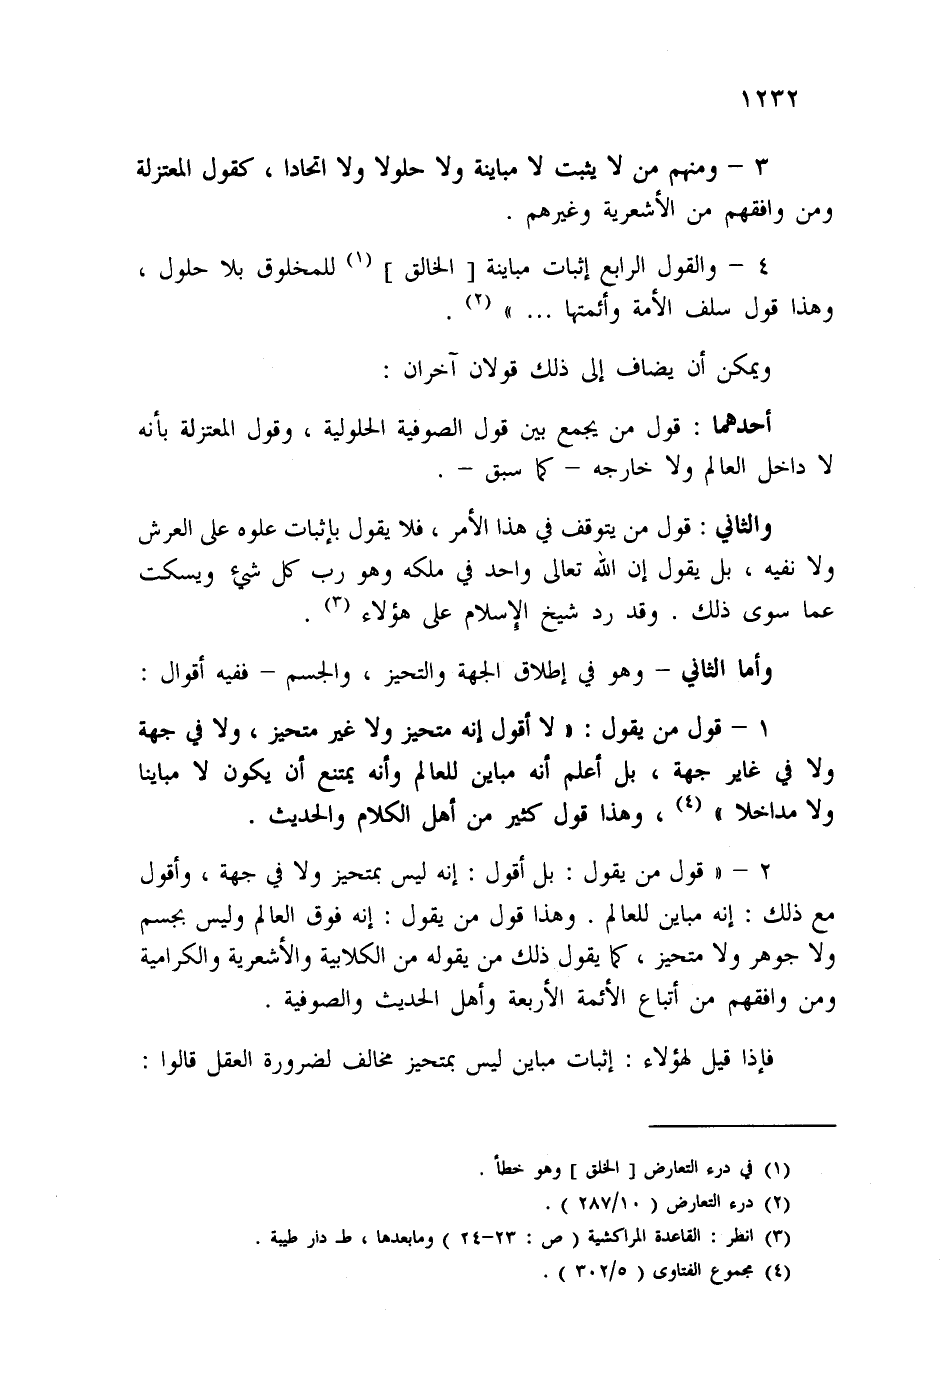 ١٢٣٢
٣ – ومنهم من لا يثبت لا مباينة ولا حلولا ولا اتحادا ، كقول المعتزلة
ومن وافقهم من الأشعرية وغيرهم .
٤ – والقول الرابع إثبات مباينة [ الخالق ] (١) للمخلوق بلا حلول ،
وهذا قول سلف الأمة وأئمتها ... » (٢) .
ويمكن أن يضاف إلى ذلك قولان آخران :
أحدهما : قول من يجمع بين قول الصوفية الحلولية ، وقول المعتزلة بأنه
لا داخل العالم ولا خارجه – كما سبق – .
والثاني : قول من يتوقف في هذا الأمر ، فلا يقول بإثبات علوه على العرش
ولا نفيه ، بل يقول إن الله تعالى واحد في ملكه وهو رب كل شيء ويسكت
عما سوى ذلك . وقد رد شيخ الإسلام على هؤلاء (٣) .
وأما الثاني – وهو في إطلاق الجهة والتحيز ، والجسم – ففيه أقوال :
١ – قول من يقول : « لا أقول إنه متحيز ولا غير متحيز ، ولا في جهة
ولا في غاير جهة ، بل أعلم أنه مباين للعالم وأنه يمتنع أن يكون لا مباينا
ولا مداخلا » (٤) ، وهذا قول كثير من أهل الكلام والحديث .
٢ – « قول من يقول : بل أقول : إنه ليس بمتحيز ولا في جهة ، وأقول
مع ذلك : إنه مباين للعالم . وهذا قول من يقول : إنه فوق العالم وليس بجسم
ولا جوهر ولا متحيز ، كما يقول ذلك من يقوله من الكلابية والأشعرية والكرامية
ومن وافقهم من أتباع الأئمة الأربعة وأهل الحديث والصوفية .
فإذا قيل لهؤلاء : إثبات مباين ليس بمتحيز مخالف لضرورة العقل قالوا :
(١) في درء التعارض [ الخلق ] وهو خطأ .
(٢) درء التعارض ( ٢٨٧/١٠ ) .
(٣) انظر : القاعدة المراكشية ( ص : ٢٣–٢٤ ) ومابعدها ، ط دار طيبة .
(٤) مجموع الفتاوى ( ٣٠٢/٥ ) .